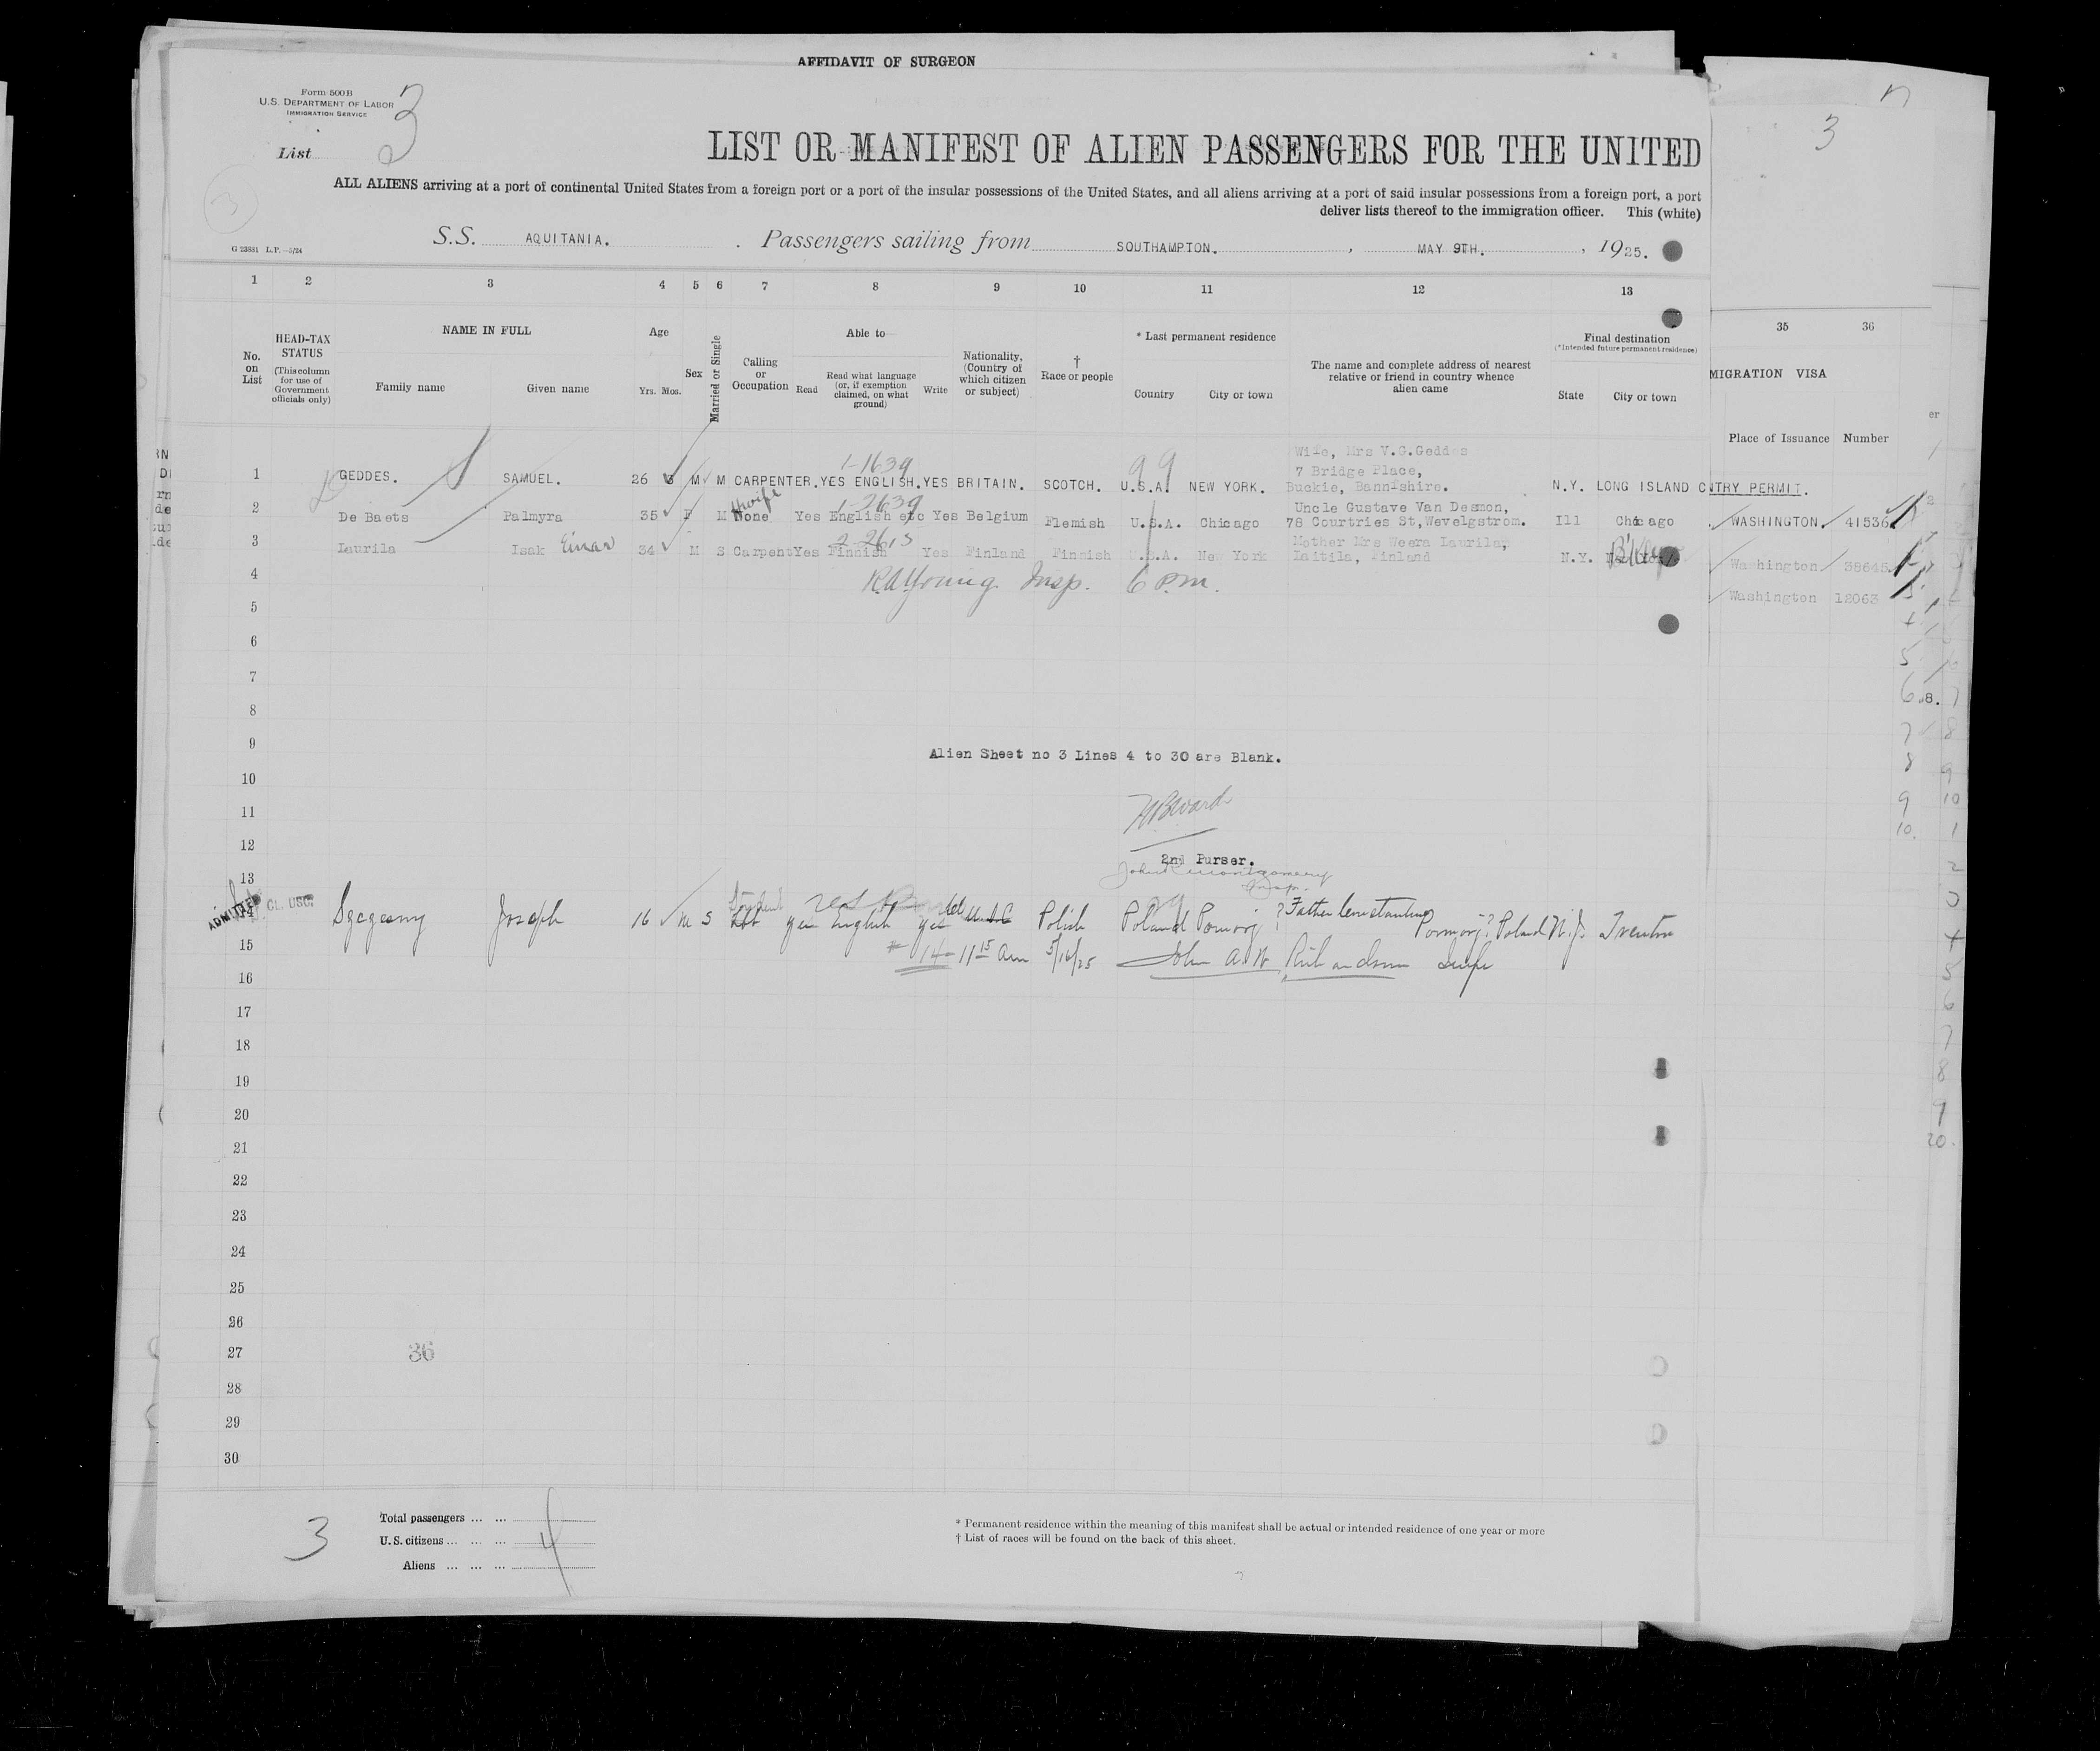 AFFIDAVIT OF SURGEON
Form 500 B
U.S. DEPARTMENT OF LABOR
IMMIGRATION SERVICE
List 3
3
3
LIST OR MANIFEST OF ALIEN PASSENGERS FOR THE UNITED
ALL ALIENS arriving at a port of continental United States from a foreign port or a port of the insular possessions of the United States, and all aliens arriving at a port of said insular possessions from a foreign port, a port
deliver lists thereof to the immigration officer. This (white)
G 23881 L.P. —5/24
S.S. AQUITANIA. Passengers sailing from SOUTHAMPTON. , MAY 9TH. , 1925.
1 2 3 4 5 6 7 8 9 10 11 12 13 35 36
No. on List
HEAD-TAX STATUS (This column for use of Government officials only)
NAME IN FULL
Family name Given name
Age
Yrs. Mos.
Sex
Married or Single
Calling or Occupation
Able to
Read Read what language (or, if exemption claimed, on what ground) Write
Nationality, (Country of which citizen or subject)
† Race or people
* Last permanent residence
Country City or town
The name and complete address of nearest relative or friend in country whence alien came
Final destination
(*Intended future permanent residence)
State City or town
MIGRATION VISA
Place of Issuance Number
1-1639
Wife, Mrs V.G.Geddes
7 Bridge Place,
1 GEDDES. SAMUEL. 26 M M CARPENTER. YES ENGLISH. YES BRITAIN. SCOTCH. U.S.A. NEW YORK. Buckie, Bannfshire. N.Y. LONG ISLAND CNTRY PERMIT.
Hwife 1-2639
Uncle Gustave Van Desmon,
2 De Baets Palmyra 35 F M None Yes English etc Yes Belgium Flemish U.S.A. Chicago 78 Courtries St, Wevelgstrom. Ill Chicago WASHINGTON. 41536
2-2615
Mother Mrs Weera Laurila,
3 Laurila Isak Einar 34 M S Carpent Yes Finnish Yes Finland Finnish U.S.A. New York Laitila, Finland N.Y. Washington 38645
Washington 12063
4 R.A. Young Insp. 6 P.m.
5
6
7
8
9
Alien Sheet no 3 Lines 4 to 30 are Blank.
10
11
12
2nd Purser.
13
John Montgomery
Insp.
ADMITTED
14 Joseph 16 M S Student yes English yes Polish Poland Pomorj ? Father Constantin Pomorj ? Poland N.J. Trenton
15 # 14 - 11 15 am 5/16/25 John A. W. Richardson
16
17
18
19
20
21
22
23
24
25
26
27 36
28
29
30
3
Total passengers ... ...
U.S. citizens ... ... ...
Aliens ... ... ...
4
* Permanent residence within the meaning of this manifest shall be actual or intended residence of one year or more
† List of races will be found on the back of this sheet.